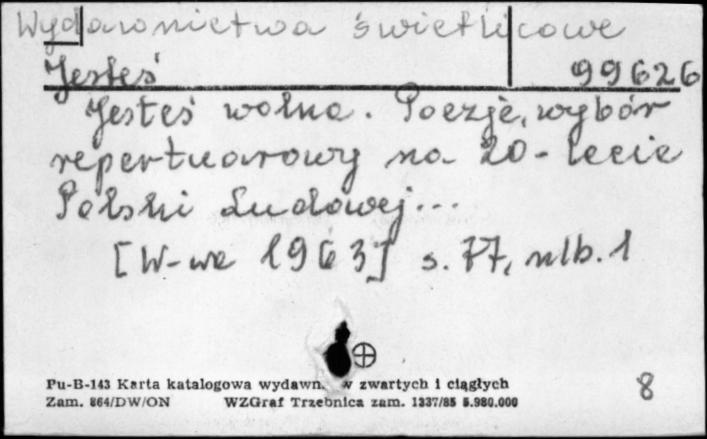 Wydawnictwa świetlicowe
Jesteś 99626
Jesteś wolna. Poezje, wybór
repertuarowy na 20-lecie
Polski Ludowej...
[W-wa 1963] s. 77, nlb. 1
Pu-B-143 Karta katalogowa wydawn. w zwartych i ciągłych
Zam. 864/DW/ON WZGraf Trzebnica zam. 1337/85 5.980.000
8